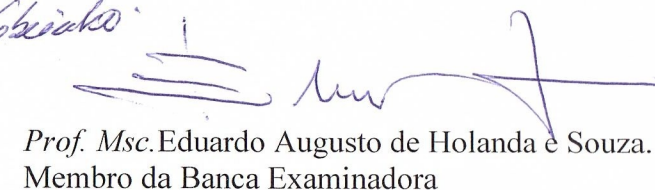 Prof. Msc.Eduardo Augusto de Holanda e Souza.
Membro da Banca Examinadora